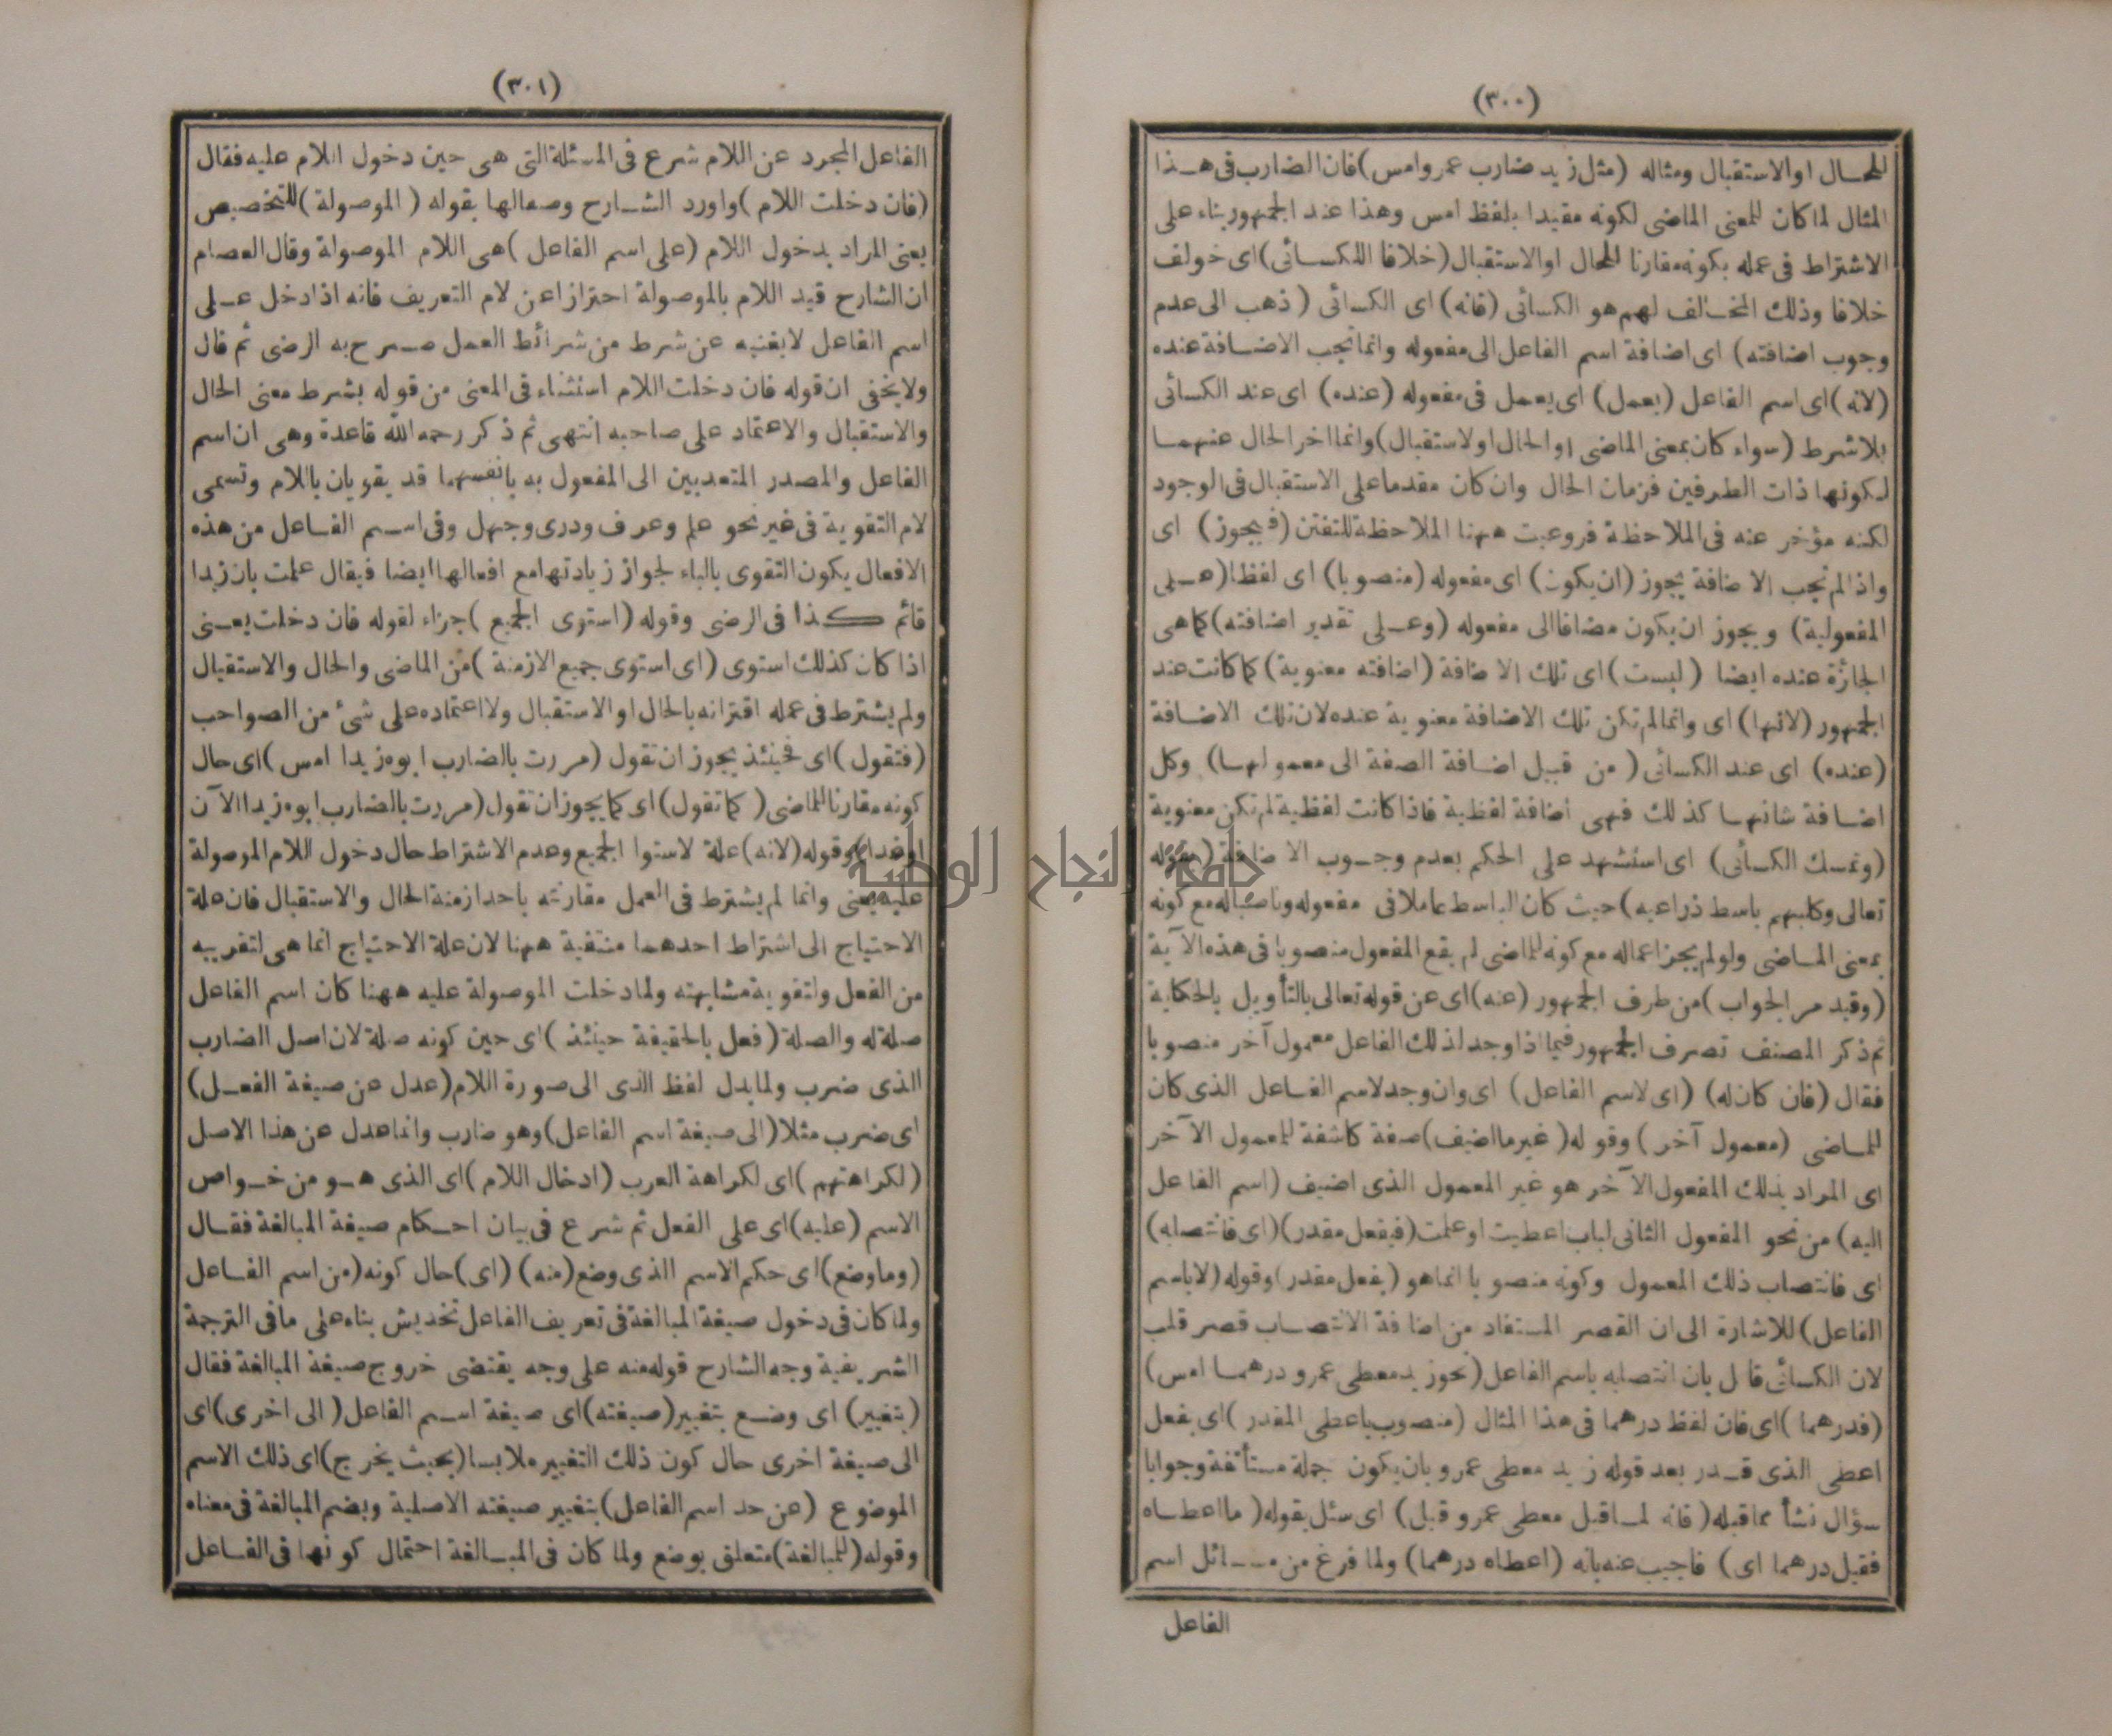 (٣٠٠)
للحال او الاستقبال ومثاله (مثل زيد ضارب عمرو امس) فان الضارب فى هذا
المثال لما كان للمعنى الماضى لكونه مقيدا بلفظ امس وهذا عند الجمهور بناء على
الاشتراط فى عمله بكونه مقارنا للحال او الاستقبال (خلافا للكسائى) اى خولف
خلافا وذلك المخالف لهم هو الكسائى (فانه) اى الكسائى (ذهب الى عدم
وجوب اضافته) اى اضافة اسم الفاعل الى مفعوله وانما تجب الاضافة عنده
(لانه) اى اسم الفاعل (يعمل) اى يعمل فى مفعوله (عنده) اى عند الكسائى
بلا شرط (سواء كان بمعنى الماضى او الحال او لاستقبال) وانما اخر الحال عنهما
لكونها ذات الطرفين فزمان الحال وان كان مقدما على الاستقبال فى الوجود
لكنه مؤخر عنه فى الملاحظة فروعيت ههنا الملاحظة للتفنن (فيجوز) اى
واذا لم تجب الاضافة يجوز (ان يكون) اى مفعوله (منصوبا) اى لفظا (على
المفعولية) ويجوز ان يكون مضافا الى مفعوله (وعلى تقدير اضافته) كما هى
الجائزة عنده ايضا (ليست) اى تلك الاضافة (اضافته معنوية) كما كانت عند
الجمهور (لانها) اى وانما لم تكن تلك الاضافة معنوية عنده لان تلك الاضافة
(عنده) اى عند الكسائى (من قبيل اضافة الصفة الى معمولها) وكل
اضافة شانها كذلك فهى اضافة لفظية فاذا كانت لفظية لم تكن معنوية
(وتمسك الكسائى) اى استشهد على الحكم بعدم وجوب الاضافة (بقوله
تعالى وكلبهم باسط ذراعيه) حيث كان الباسط عاملا فى مفعوله وناصبا له مع كونه
بمعنى الماضى ولو لم يجز اعماله مع كونه للماضى لم يقع المفعول منصوبا فى هذه الآية
(وقيد مر الجواب) من طرف الجمهور (عنه) اى عن قوله تعالى بالتأويل بالحكاية
ثم ذكر المصنف تصرف الجمهور فيما اذا وجد لذلك الفاعل معمول آخر منصوبا
فقال (فان كان له) (اى لاسم الفاعل) اى وان وجد لاسم الفاعل الذى كان
للماضى (معمول آخر) وقوله (غير ما اضيف) صفة كاشفة للمعمول الآخر
اى المراد بذلك المفعول الآخر هو غير المعمول الذى اضيف (اسم الفاعل
اليه) من نحو المفعول الثانى لباب اعطيت او علمت (فبفعل مقدر) (اى فانتصابه)
اى فانتصاب ذلك المعمول وكونه منصوبا انما هو (بفعل مقدر) وقوله (لا باسم
الفاعل) للاشارة الى ان القصر المستفاد من اضافة الانتصاب قصر قلب
لان الكسائى قا ل بان انتصابه باسم الفاعل (نحو زيد معطى عمرو درهما امس)
(فدرهما) اى فان لفظ درهما فى هذا المثال (منصوب باعطى المقدر) اى بفعل
اعطى الذى قدر بعد قوله زيد معطى عمرو بان يكون جملة مستأنفة وجوابا
سؤال نشأ مما قبله (فانه لما قيل معطى عمرو قيل) اى سئل بقوله (ما اعطاه
فقيل درهما اى) فاجيب عنه بانه (اعطاه درهما) ولما فرغ من مسائل اسم
الفاعل
(٣٠١)
الفاعل المجرد عن اللام شرع فى المسئلة التى هى حين دخول اللام عليه فقال
(فان دخلت اللام) واورد الشارح وصفالها بقوله (الموصولة) للتخصيص
يعنى المراد بدخول اللام (على اسم الفاعل) هى اللام الموصولة وقال العصام
ان الشارح قيد اللام بالموصولة احترازا عن لام التعريف فانه اذا دخل على
اسم الفاعل لا يغنيه عن شرط من شرائط العمل صرح به الرضى ثم قال
ولا يخفى ان قوله فان دخلت اللام استثناء فى المعنى من قوله بشرط معنى الحال
والاستقبال والاعتماد على صاحبه انتهى ثم ذكر رحمه الله قاعدة وهى ان اسم
الفاعل والمصدر المتعديين الى المفعول به بانفسهما قد يقويان باللام وتسمى
لام التقوية فى غير نحو علم وعرف ودرى وجهل وفى اسم الفاعل من هذه
الافعال يكون التقوى بالباء لجواز زيادتها مع افعالها ايضا فيقال علمت بان زيدا
قائم كذا فى الرضى وقوله (استوى الجميع) جزاء لقوله فان دخلت يعنى
اذا كان كذلك استوى (اى استوى جميع الازمنة) من الماضى والحال والاستقبال
ولم يشترط فى عمله اقترانه بالحال او الاستقبال ولا اعتماده على شئ من الصواحب
(فتقول) اى فحينئذ يجوز ان تقول (مررت بالضارب ابوه زيدا امس) اى حال
كونه مقارنا للماضى (كما تقول) اى كما يجوز ان تقول (مررت بالضارب ابوه زيدا الآن
او غدا) وقوله (لانه) علة لاستوا الجميع وعدم الاشتراط حال دخول اللام الموصولة
عليه يعنى وانما لم يشترط فى العمل مقارنته باحد ازمنة الحال والاستقبال فان علة
الاحتياج الى اشتراط احدهما منتفية ههنا لان علة الاحتياج انما هى لتقريبه
من الفعل ولتقوية مشابهته ولما دخلت الموصولة عليه ههنا كان اسم الفاعل
صلة له والصلة (فعل بالحقيقة حينئذ) اى حين كونه صلة لان اصل الضارب
الذى ضرب ولما بدل لفظ الذى الى صورة اللام (عدل عن صيغة الفعل)
اى ضرب مثلا (الى صيغة اسم الفاعل) وهو ضارب وانما عدل عن هذا الاصل
(لكراهتهم) اى لكراهة العرب (ادخال اللام) اى الذى هو من خواص
الاسم (عليه) اى على الفعل ثم شرع فى بيان احكام صيغة المبالغة فقال
(وما وضع) اى حكم الاسم الذى وضع (منه) (اى) حال كونه (من اسم الفاعل
ولما كان فى دخول صيغة المبالغة فى تعريف الفاعل تخديش بناء على ما فى الترجمة
الشريفية وجه الشارح قوله منه على وجه يقتضى خروج صيغة المبالغة فقال
(بتغيير) اى وضع بتغيير (صيغته) اى صيغة اسم الفاعل (الى اخرى) اى
الى صيغة اخرى حال كون ذلك التغيير ملابسا (بحيث يخرج) اى ذلك الاسم
الموضوع (عن حد اسم الفاعل) بتغيير صيغته الاصلية وبضم المبالغة فى معناه
وقوله (للمبالغة) متعلق بوضع ولما كان فى المبالغة احتمال كونها فى الفاعل
جامعة النجاح الوطنية